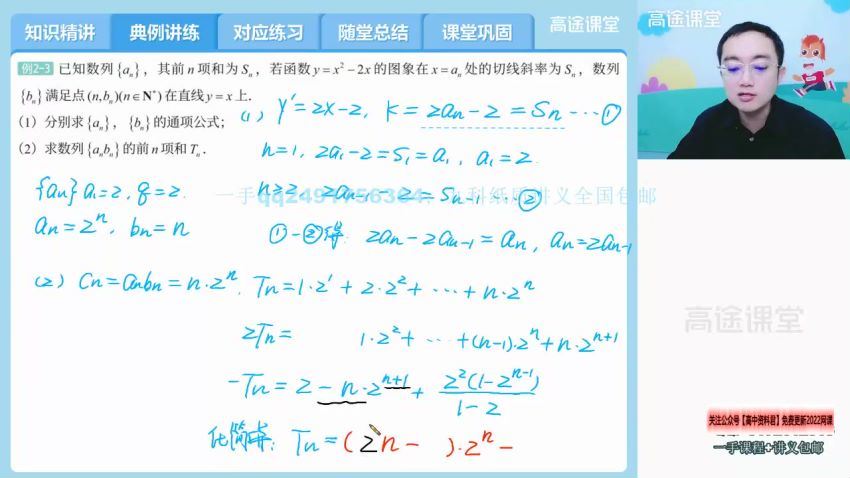 知识精讲 典例讲练 对应练习 随堂总结 课堂巩固 高途课堂
高途课堂
例2-3 已知数列{aₙ}，其前n项和为Sₙ，若函数y=x²-2x的图象在x=aₙ处的切线斜率为Sₙ，数列
{bₙ}满足点(n,bₙ)(n∈N*)在直线y=x上.
(1) 分别求{aₙ}，{bₙ}的通项公式；
(2) 求数列{aₙbₙ}的前n项和Tₙ.
(1) y'=2x-2, K=2aₙ-2=Sₙ …①
n=1, 2a₁-2=S₁=a₁, a₁=2
n≥2 2aₙ₋₁-2=Sₙ₋₁ …②
①-②得 2aₙ-2aₙ₋₁=aₙ, aₙ=2aₙ₋₁
{aₙ} a₁=2, q=2
aₙ=2ⁿ, bₙ=n
(2) Cₙ=aₙbₙ=n·2ⁿ, Tₙ=1·2¹+2·2²+…+n·2ⁿ
2Tₙ= 1·2²+…+(n-1)·2ⁿ+n·2ⁿ⁺¹
-Tₙ=2-n·2ⁿ⁺¹+ 2²(1-2ⁿ⁻¹)
1-2
Tₙ=(2n- )·2ⁿ-
高途课堂
关注公众号【高中资料君】免费更新2022网课
一手课程+讲义包邮